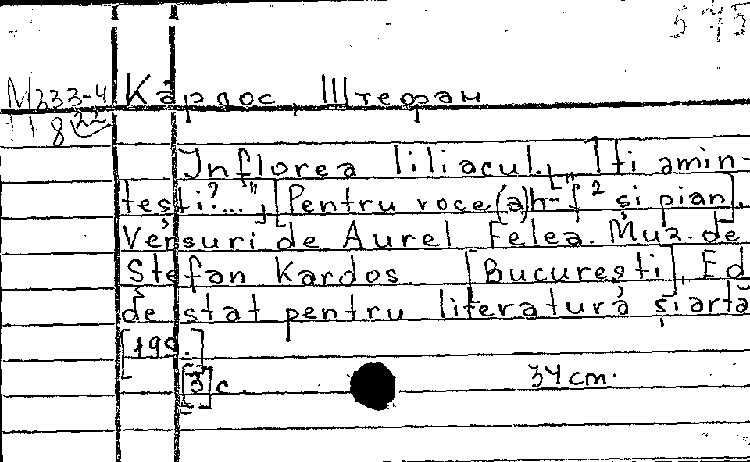 575
М333-4 Кардос, Штефан
822
Inflorea liliacul. ["Iți amin-
tești?..."] [Pentru voce (a)h-f² și pian].
Versuri de Aurel Felea. Muz. de
Ștefan Kardos [București], Ed.
de stat pentru literatură și artă
[195.]
[3] c. 34 cm.